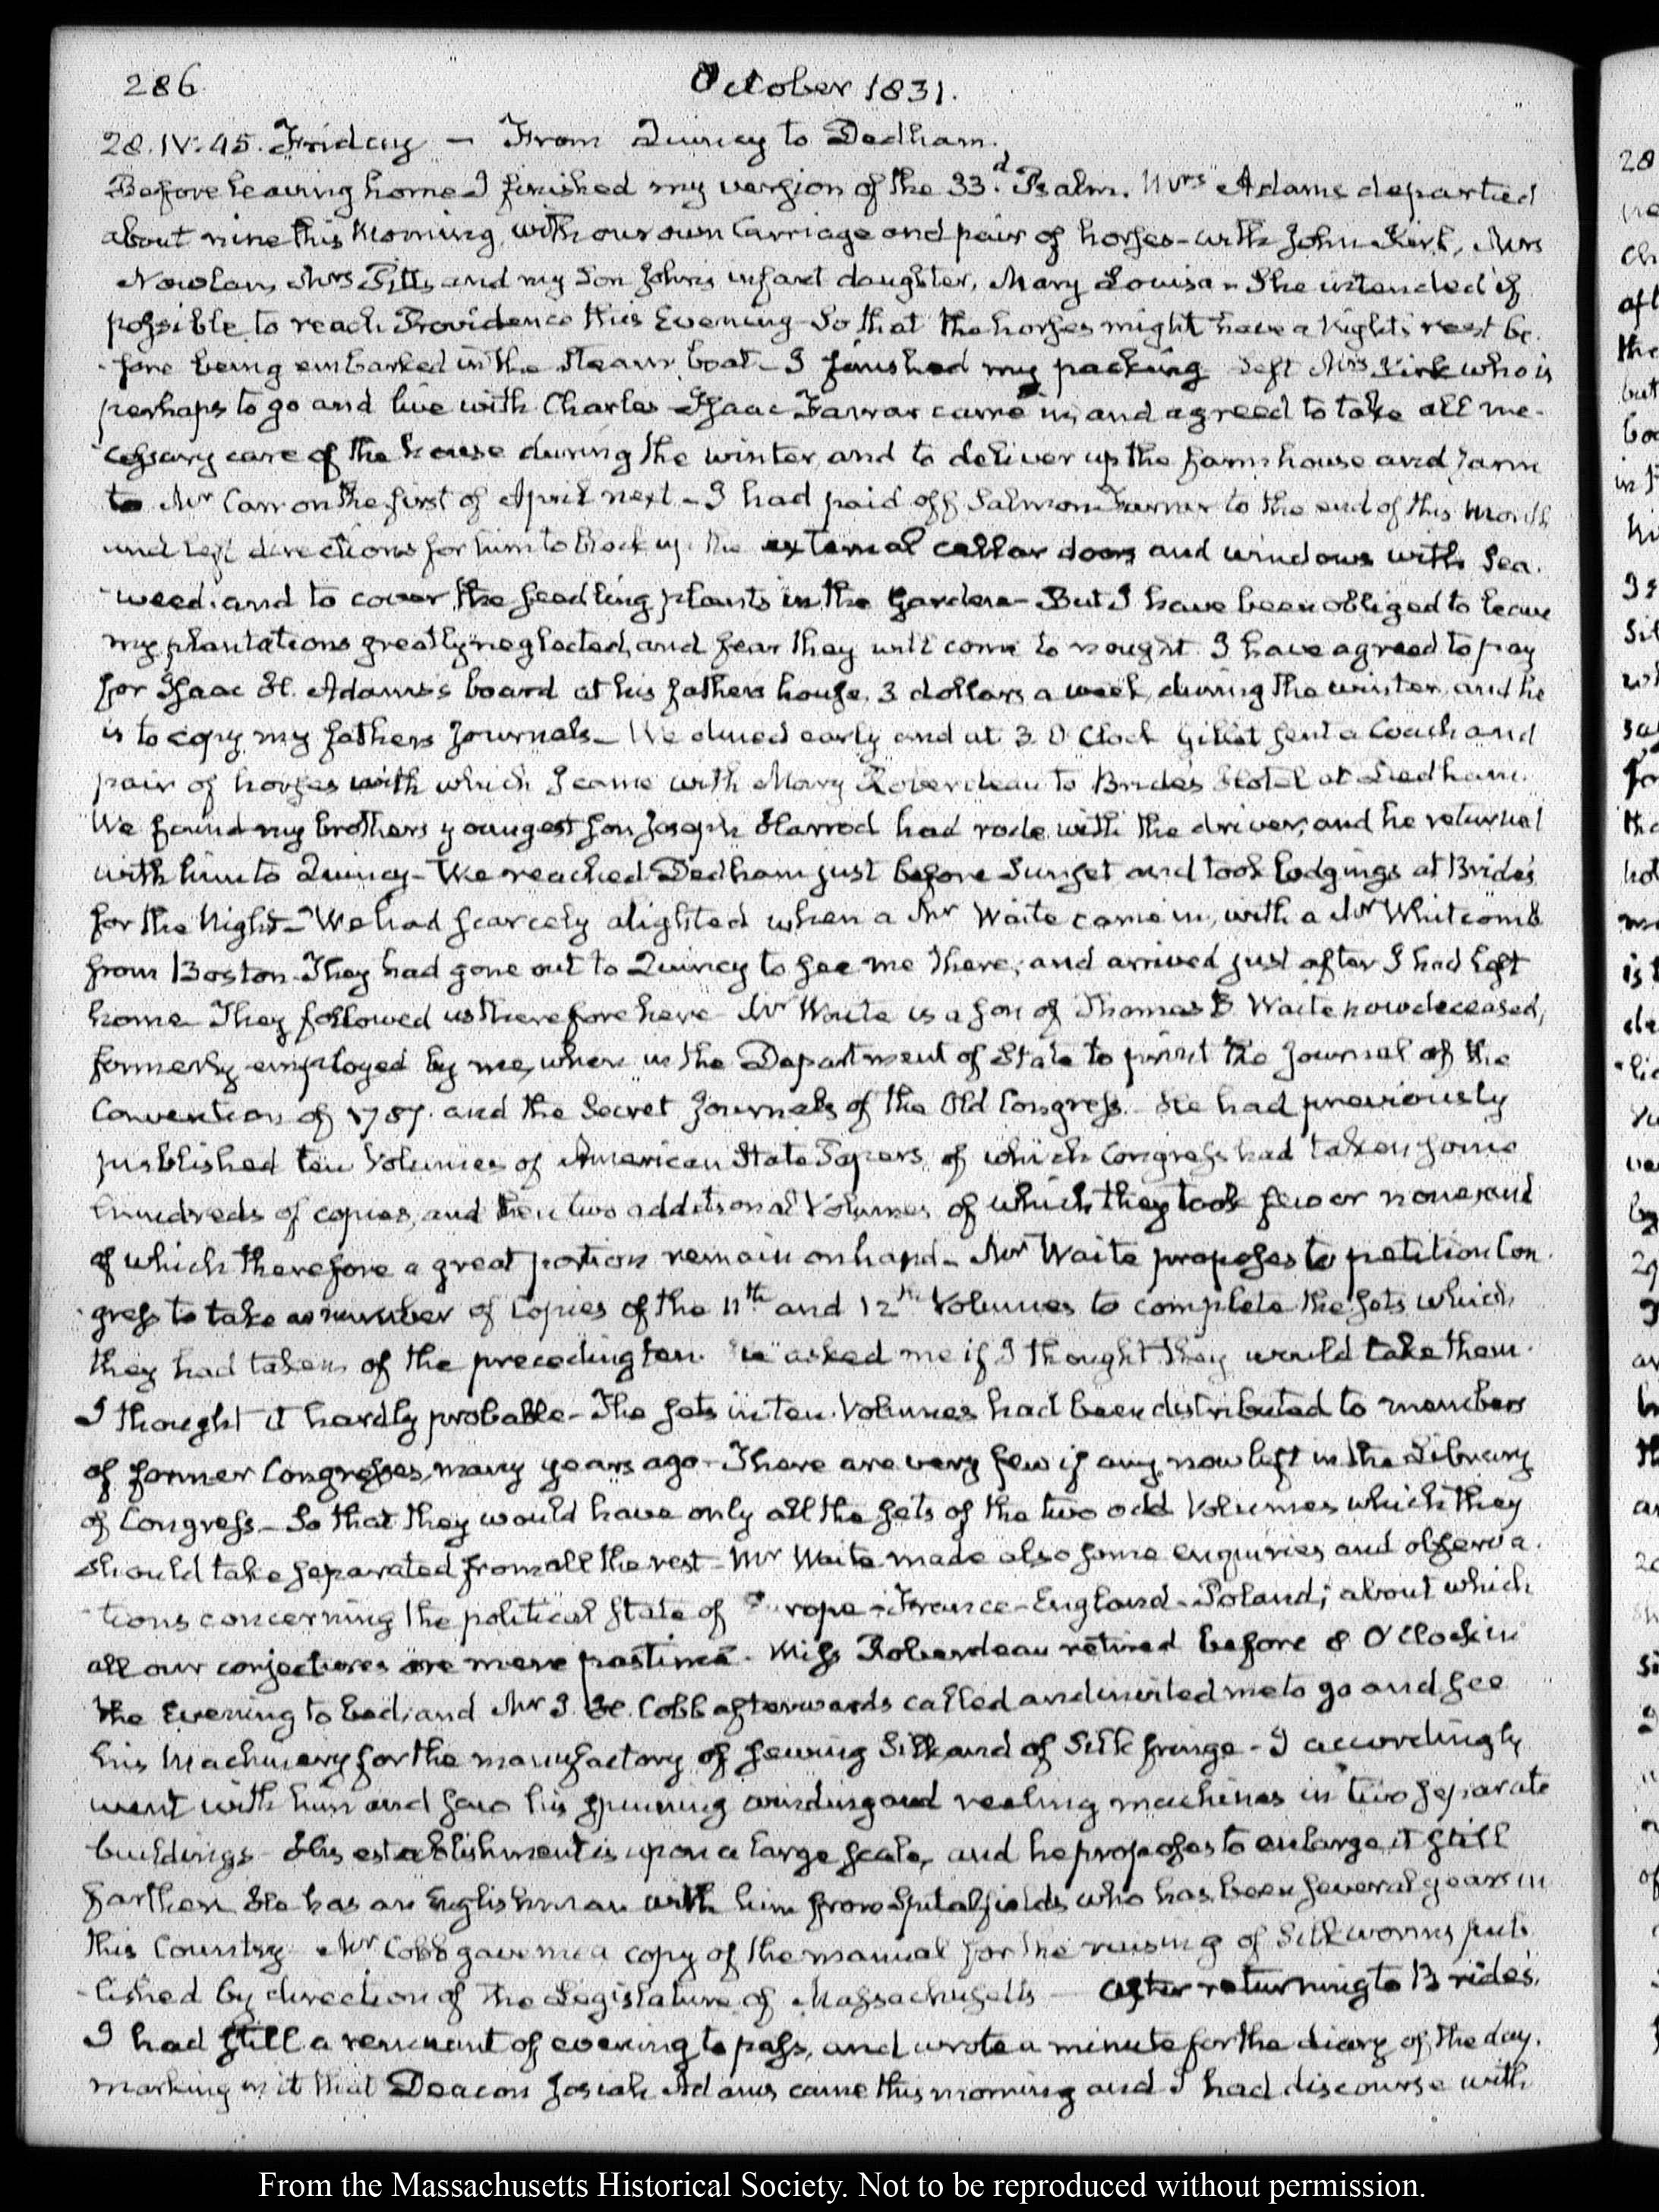 286.
October 1831.
28. IV:45. Friday — From Quincy to Dedham.
Before leaving home I finished my version of the 33.d Psalm. Mrs Adams departed
about nine this Morning, with our own Carriage and pair of horses - with John Kirk, Mrs
Nowlan, Mrs Pitts and my Son John's infant daughter, Mary Louisa - She intended if
possible to reach Providence this Evening - So that the horses might have a Nights rest be-
-fore being embarked in the Steam boat - I finished my packing. Left Mrs Kirk who is
perhaps to go and live with Charles - Isaac Farrar came in, and agreed to take all ne-
-cessary care of the house during the winter, and to deliver up the farm house and farm
to Mr Carr on the first of April next - I had paid off Salmon Farmer to the end of this Month
and left directions for him to block up the external cellar doors and windows with Sea-
-weed, and to cover the seedling plants in the Garden - But I have been obliged to leave
my plantations greatly neglected, and fear they will come to nought. I have agreed to pay
for Isaac H. Adams's board at his fathers house, 3 dollars a week, during the winter, and he
is to copy my fathers Journals - We dined early and at 3 O'Clock Gillet sent a Coach and
pair of horses with which I came with Mary Roberdeau to Bride's Hotel at Dedham.
We found my brothers youngest son Joseph Harrod had rode with the driver, and he returned
with him to Quincy - We reached Dedham just before Sunset and took lodgings at Bride's
for the Night - We had scarcely alighted when a Mr Waite came in, with a Mr Whitcomb
from Boston - They had gone out to Quincy to see me there, and arrived just after I had left
home. They followed us therefore here - Mr Waite is a son of Thomas B. Waite now deceased,
formerly employed by me, when in the Department of State to print the Journal of the
Convention of 1787. and the Secret Journals of the Old Congress. He had previously
published ten Volumes of American State Papers, of which Congress had taken some
hundreds of copies, and then two additional Volumes of which they took few or none, and
of which therefore a great portion remain on hand - Mr Waite proposes to petition Con-
-gress to take a number of Copies of the 11th and 12th Volumes to complete the sets which
they had taken of the preceding ten. He asked me if I thought they would take them.
I thought it hardly probable - The sets in ten Volumes had been distributed to members
of former Congresses, many years ago - There are very few if any now left in the Library
of Congress - So that they would have only all the sets of the two odd Volumes which they
should take separated from all the rest - Mr Waite made also some enquiries and observa-
-tions concerning the political state of Europe - France - England - Poland; about which
all our conjectures are mere pastime. Miss Roberdeau retired before 8 O'Clock in
the Evening to bed; and Mr J. H. Cobb afterwards called and invited me to go and see
his Machinery for the manufactory of sewing Silk and of Silk fringe - I accordingly
went with him and saw his spinning winding and reeling machines in two separate
buildings - His establishment is upon a large scale, and he proposes to enlarge it still
farther. He has an Englishman with him from Spitalfields who has been several years in
this Country. Mr Cobb gave me a copy of the manual for the raising of Silkworms pub-
-lished by direction of the Legislature of Massachusetts — After returning to Bride's,
I had still a remnant of evening to pass, and wrote a minute for the diary of the day.
marking in it that Deacon Josiah Adams came this morning and I had discourse with
From the Massachusetts Historical Society. Not to be reproduced without permission.